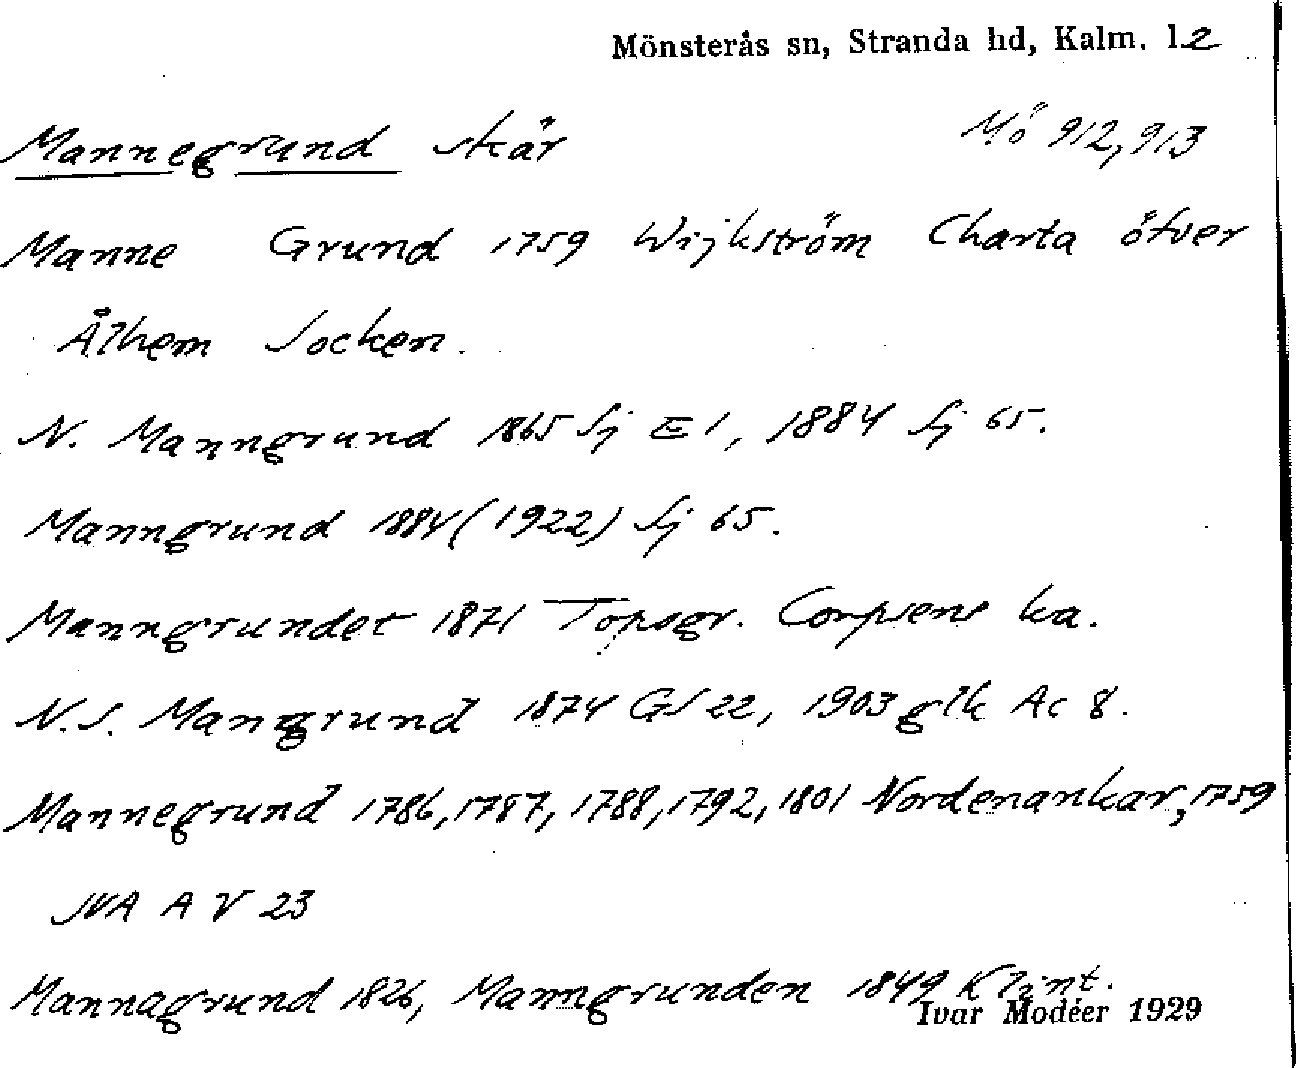 Mönsterås sn, Stranda hd, Kalm. l. 2
Mannegrund skär Mö 912, 913
Manne Grund 1759 Wijkström Charta öfver
Ålhem Socken.
N. Manngrund 1865 Sj E 1, 1884 Sj 65.
Manngrund 1884 (1922) Sj 65.
Manngrundet 1871 Topogr. Corpsens ka.
N. S. Mangrund 1874 GS 22, 1903 glk Ac 8.
Mannegrund 1786, 1787, 1788, 1792, 1801 Nordenankar, 1759
SVA A V 23
Mannagrund 1826, Manngrunden 1849 Klint.
Ivar Modéer 1929